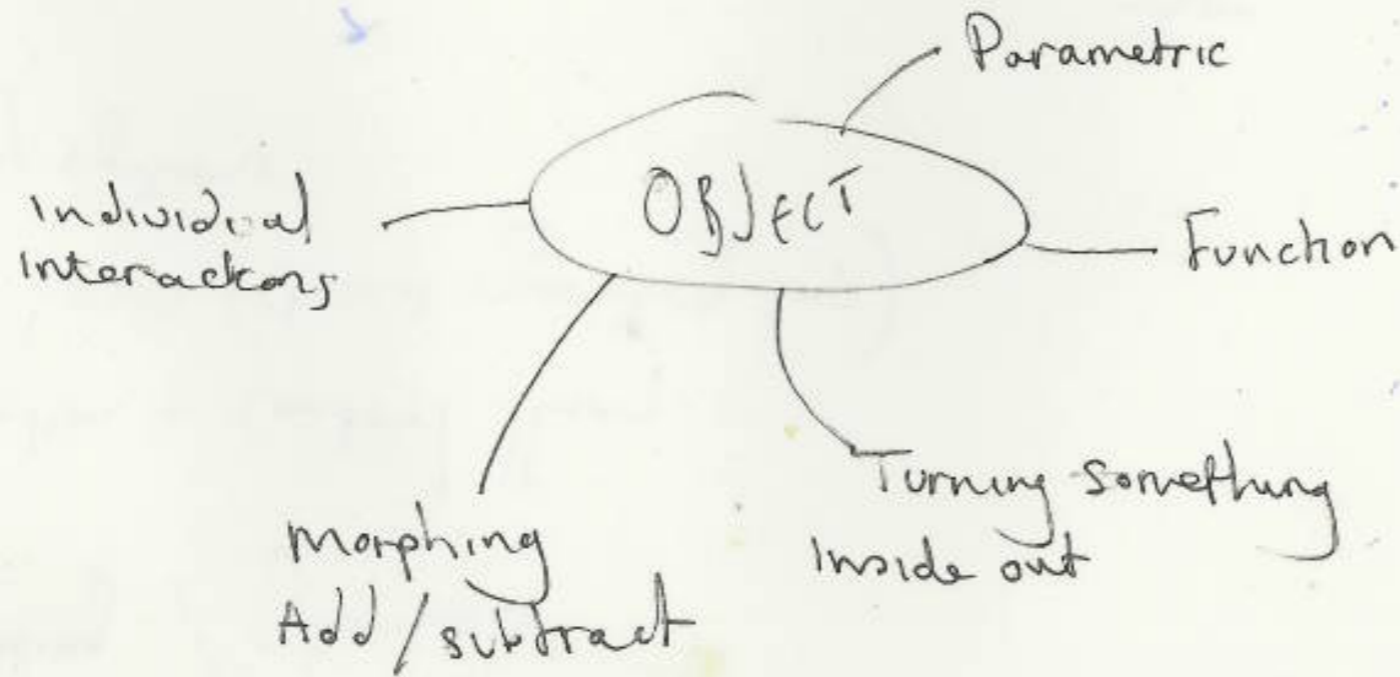 Parametric
OBJECT
Individual
Interactions
Function
Turning something
Inside out
Morphing
Add / subtract